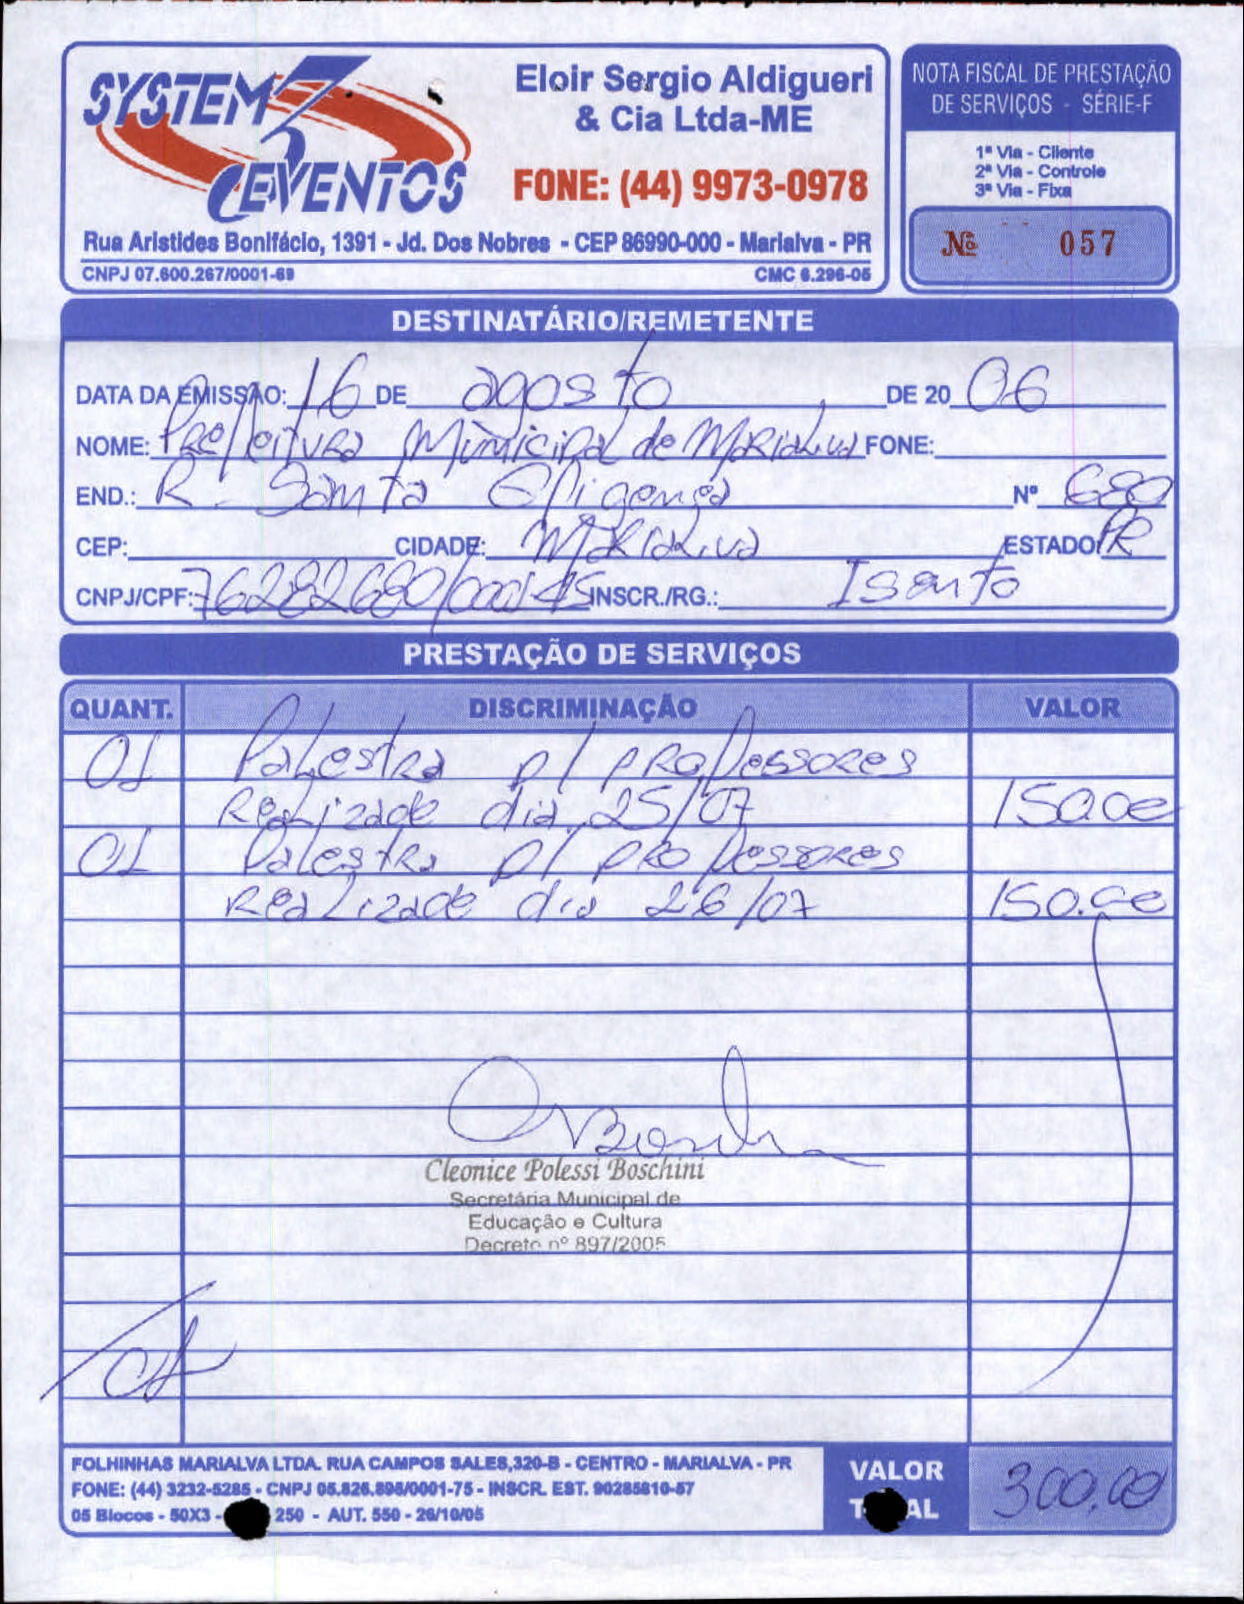 SYSTEM 3 EVENTOS
Eloir Sergio Aldigueri
& Cia Ltda-ME
FONE: (44) 9973-0978
Rua Aristides Bonifácio, 1391 - Jd. Dos Nobres - CEP 86990-000 - Marialva - PR
CNPJ 07.600.267/0001-69 CMC 6.296-05
NOTA FISCAL DE PRESTAÇÃO
DE SERVIÇOS - SÉRIE-F
1ª Via - Cliente
2ª Via - Controle
3ª Via - Fixa
Nº 057
DESTINATÁRIO/REMETENTE
DATA DA EMISSÃO: 16 DE agosto DE 20 06
NOME: Prefeitura Municipal de Marialva FONE:
END.: R. Santa Efigenia Nº 680
CEP: CIDADE: Marialva ESTADO: PR
CNPJ/CPF: 76282680/0001-45 INSCR./RG.: Isento
PRESTAÇÃO DE SERVIÇOS
QUANT. DISCRIMINAÇÃO VALOR
01 Palestra p/ professores
Realizade dia 25/07 150,00
01 Palestra p/ professores
Realizade dia 26/07 150,00
Cleonice Polessi Boschini
Secretária Municipal de
Educação e Cultura
Decreto nº 897/2005
FOLHINHAS MARIALVA LTDA. RUA CAMPOS SALES,320-B - CENTRO - MARIALVA - PR
FONE: (44) 3232-5285 - CNPJ 05.826.895/0001-75 - INSCR. EST. 90285810-57
05 Blocos - 50X3 - 250 - AUT. 550 - 26/10/05
VALOR
TOTAL 300,00